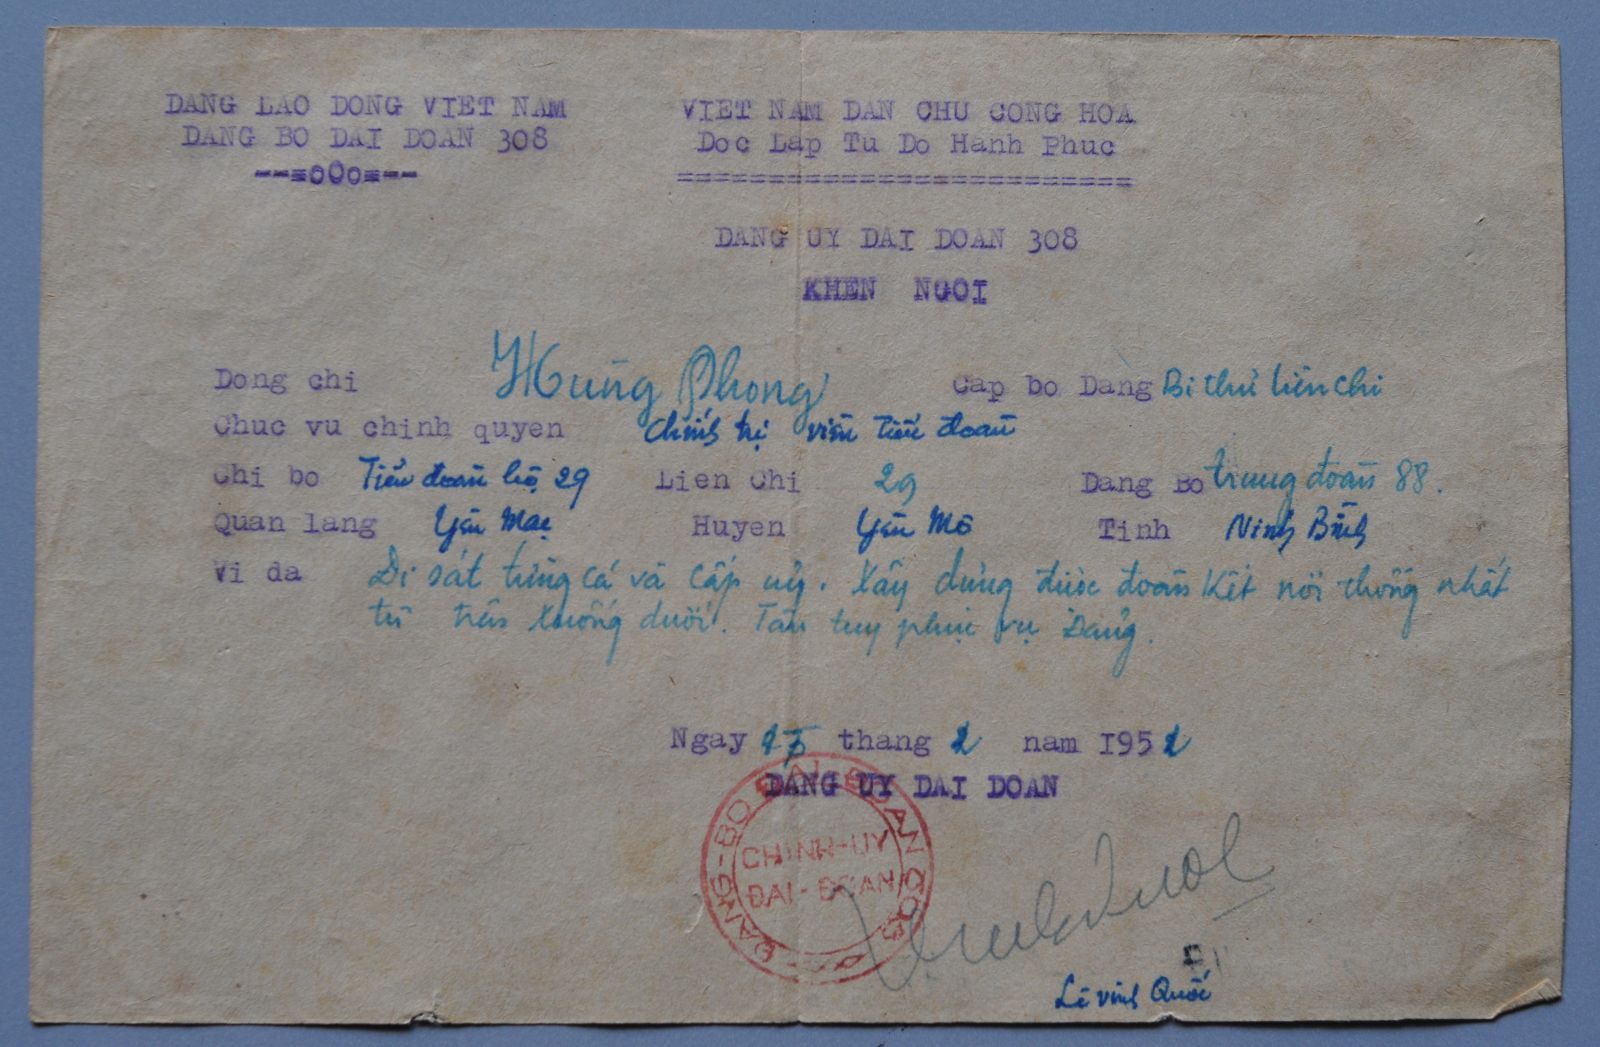 DANG LAO DONG VIET NAM
DANG BO DAI DOAN 308
---=oOo=---
VIET NAM DAN CHU CONG HOA
Doc Lap Tu Do Hanh Phuc
=========================
DANG UY DAI DOAN 308
KHEN NGOI
Dong chi Hùng Phong Cap bo Dang Bí thư liên chi
Chuc vu chinh quyen Chính trị viên Tiểu đoàn
Chi bo Tiểu đoàn bộ 29 Lien Chi 29 Dang Bo trung đoàn 88.
Quan lang Yên Mạc Huyen Yên Mô Tinh Ninh Bình
Vi da Đi sát từng cá và cấp uỷ. Xây dựng được đoàn kết nội thống nhất
từ trên xuống dưới. Tận tuỵ phục vụ Đảng.
Ngay thang 2 nam 195
DANG UY DAI DOAN
ĐẢNG-BỘ ĐẠI-ĐOÀN
CHINH-UY
ĐAI-ĐOAN
Lê Vinh Quốc